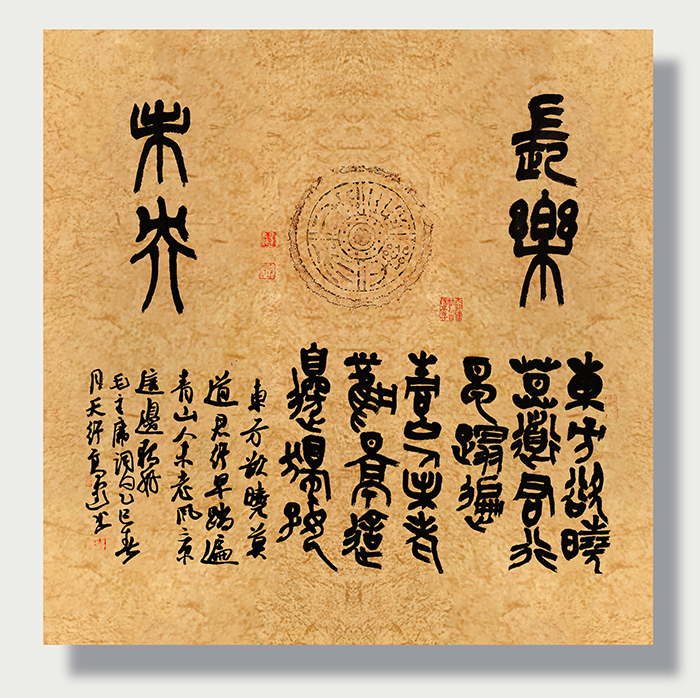 長樂
未央
東方欲曉
莫道君行
早蹋遍
青山人未老
風景這
邊獨好
東方欲曉莫
道君行早踏遍
青山人未老风景
這邊独好
毛主席詞句乙巳春
月天行